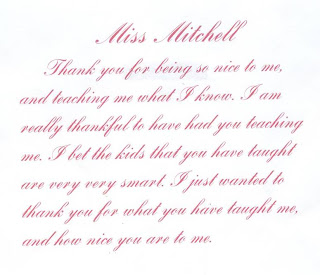 Miss Mitchell
Thank you for being so nice to me,
and teaching me what I know. I am
really thankful to have had you teaching
me. I bet the kids that you have taught
are very very smart. I just wanted to
thank you for what you have taught me,
and how nice you are to me.